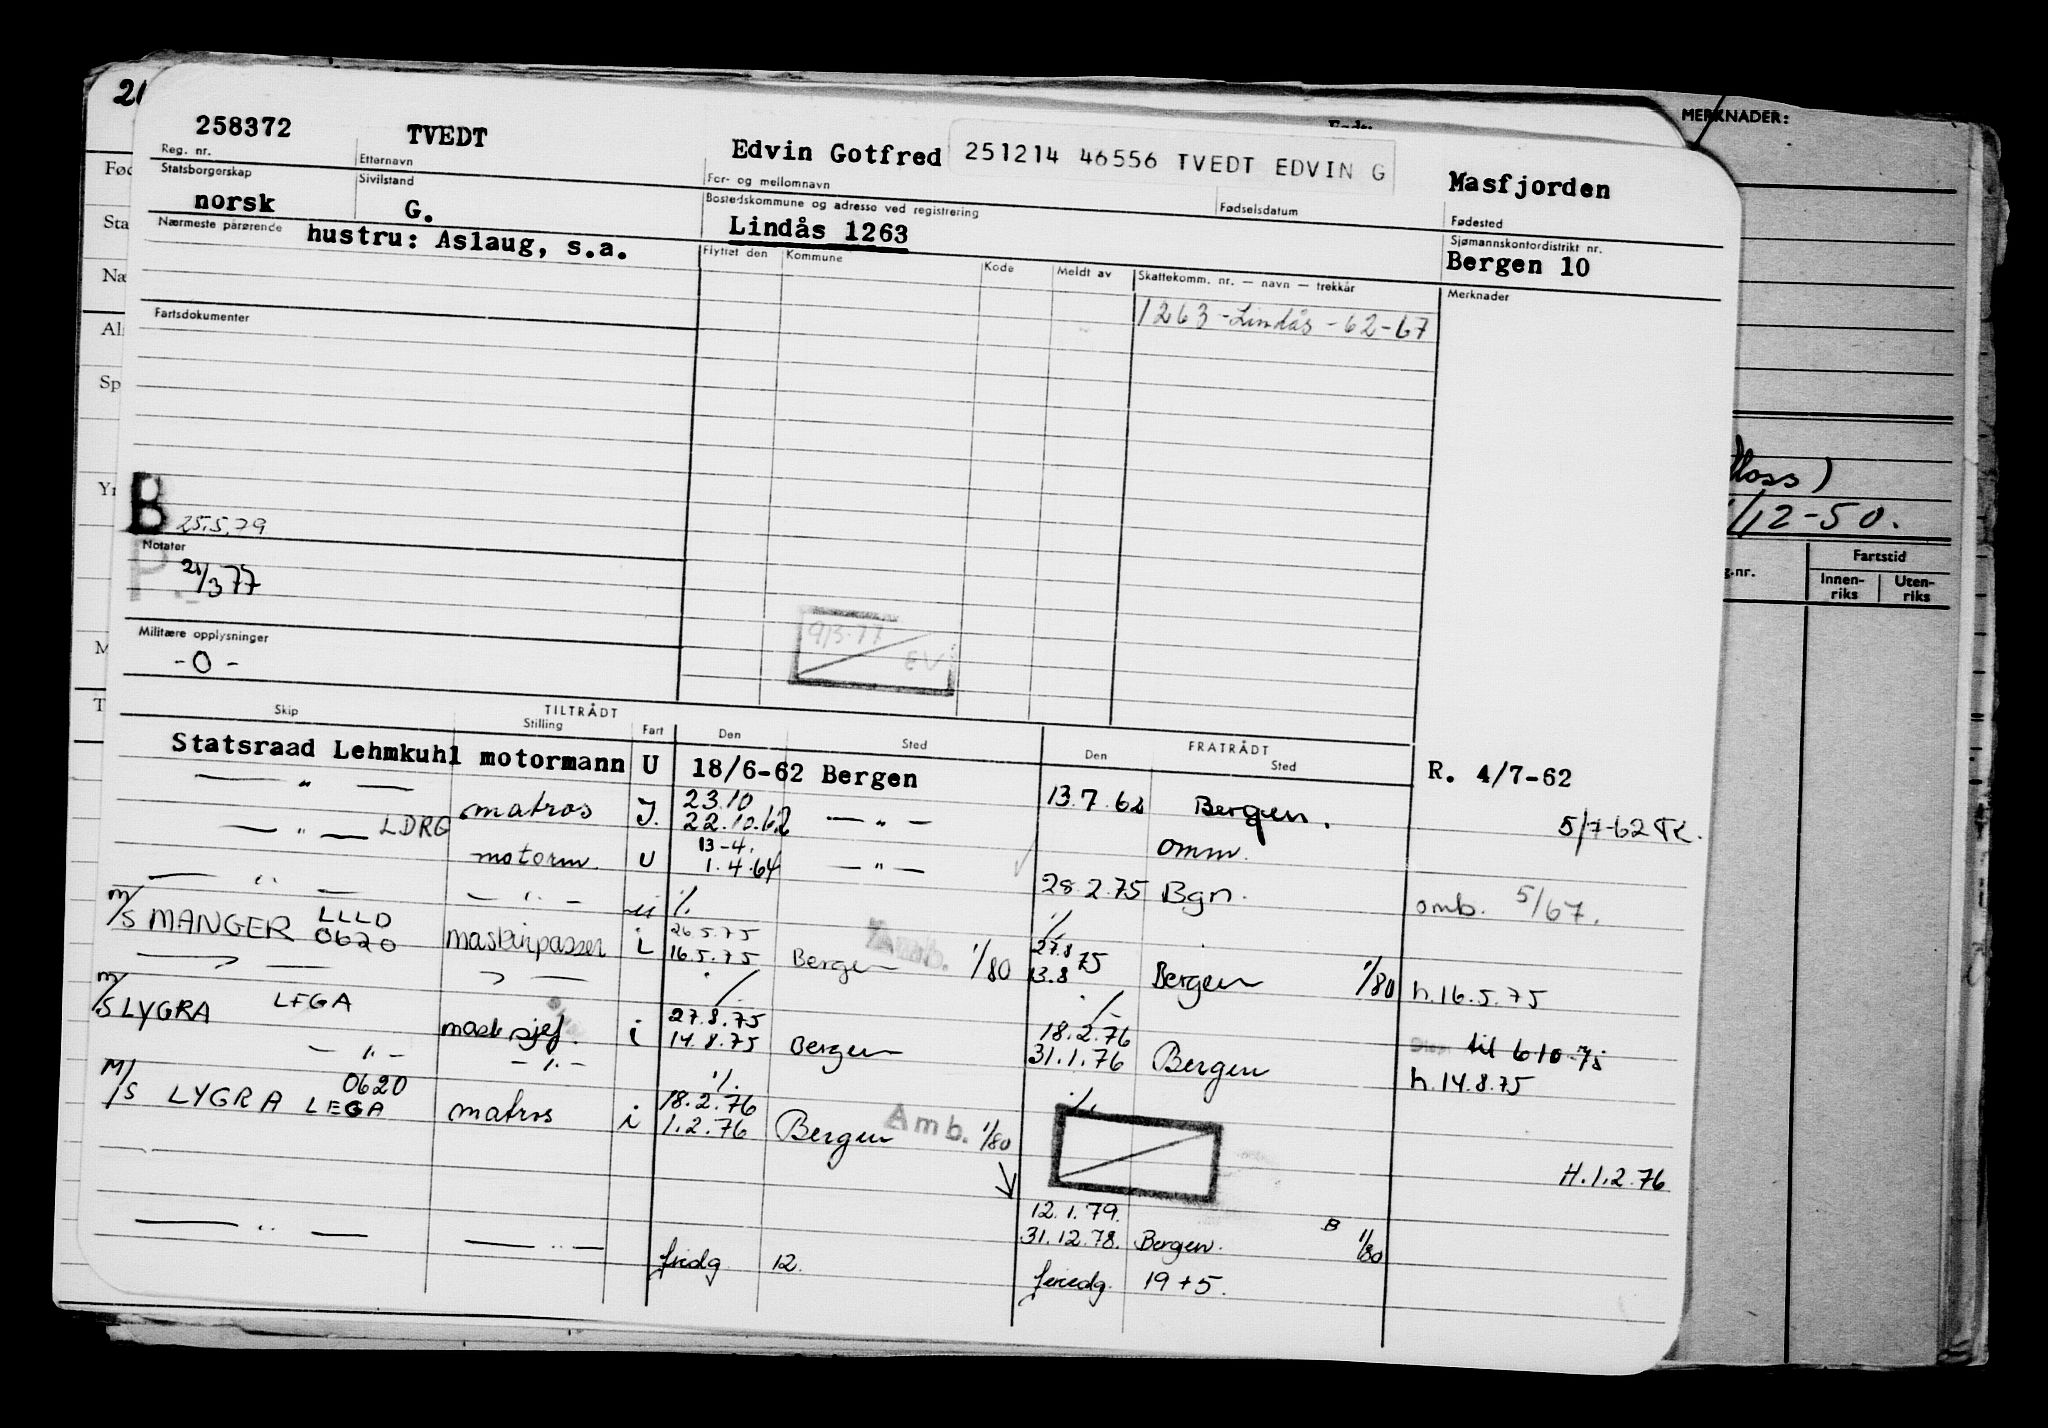 21
MERKNADER:
258372 TVEDT Edvin Gotfred 251214 46556 TVEDT EDVIN G Masfjorden
Reg. nr. Etternavn For- og mellomnavn Fødselsdatum Fødested
Statsborgerskap Sivilstand Bostedskommune og adresse ved registrering Sjømannskontordistrikt nr.
norsk G. Lindås 1263 Bergen 10
Nærmeste pårørende hustru: Aslaug, s.a.
Flyttet den Kommune Kode Meldt av Skattekomm. nr. — navn — trekkår Merknader
1263 - Lindås - 62-67
Fartsdokumenter
B 25.5.79
Notater
P 21/3 77
9/3-77 EV
Militære opplysninger
- 0 -
/12-50.
Fartstid
g.nr. Innen-riks Uten-riks
Skip TILTRÅDT Stilling Fart Den Sted FRATRÅDT Den Sted
Statsraad Lehmkuhl motormann U 18/6-62 Bergen 13.7.62 Bergen. R. 4/7-62
— " — matros J. 23.10 22.10.62 — " — omm. 5/7-62 TK.
— " — LDRG motorm. U 13-4. 1.4.64 — " — 28.2.75 Bgn. omb. 5/67.
— " — — " — ./.
M/S MANGER LLLD 0620 maskinpasser i 26.5.75 16.5.75 Bergen Amb. 1/80 27.8 13.8 75 Bergen 1/80 h.16.5.75
— " — — " — ./.
M/S LYGRA LEGA mask sjef. i 27.8.75 14.8.75 Bergen 18.2.76 31.1.76 Bergen til 6 10-75 h.14.8.75
— " — — " — ./.
M/S LYGRA 0620 LEGA matros i 18.2.76 1.2.76 Bergen Amb. 1/80 ./. H.1.2.76
12.1.79.
— " — — " — 31.12.78. Bergen. B 1/80
fridg 12. feriedg. 19 + 5.